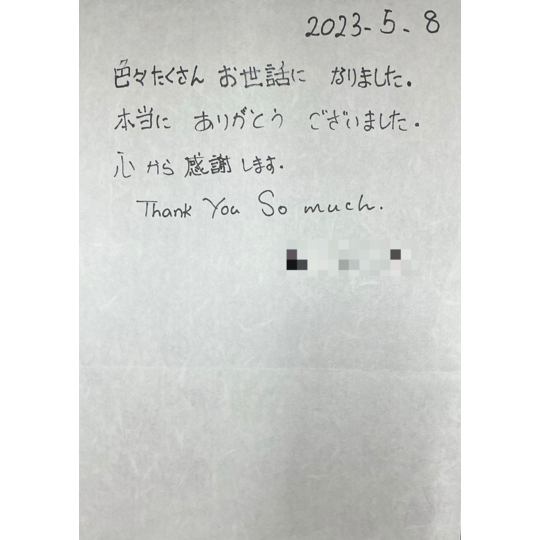 2023-5-8
色々たくさん お世話に なりました.
本当に ありがとう ございました.
心から感謝します.
Thank You So much.